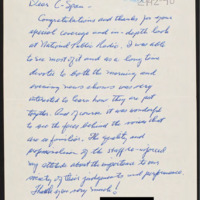 Dear C-Span -
Congratulations and thanks for your
special coverage and in-depth look
at National Public Radio. I was able
to see most of it and as a long term
devotee to both the morning and
evening news shows was very
interested to learn how they are put
together. And of course it was wonderful
to see the faces behind the voices that
are so familiar. The quality and
professionalism of the staff reinforced
my attitude about the importance to our
society of their judgments and performance.
Thank you very much!